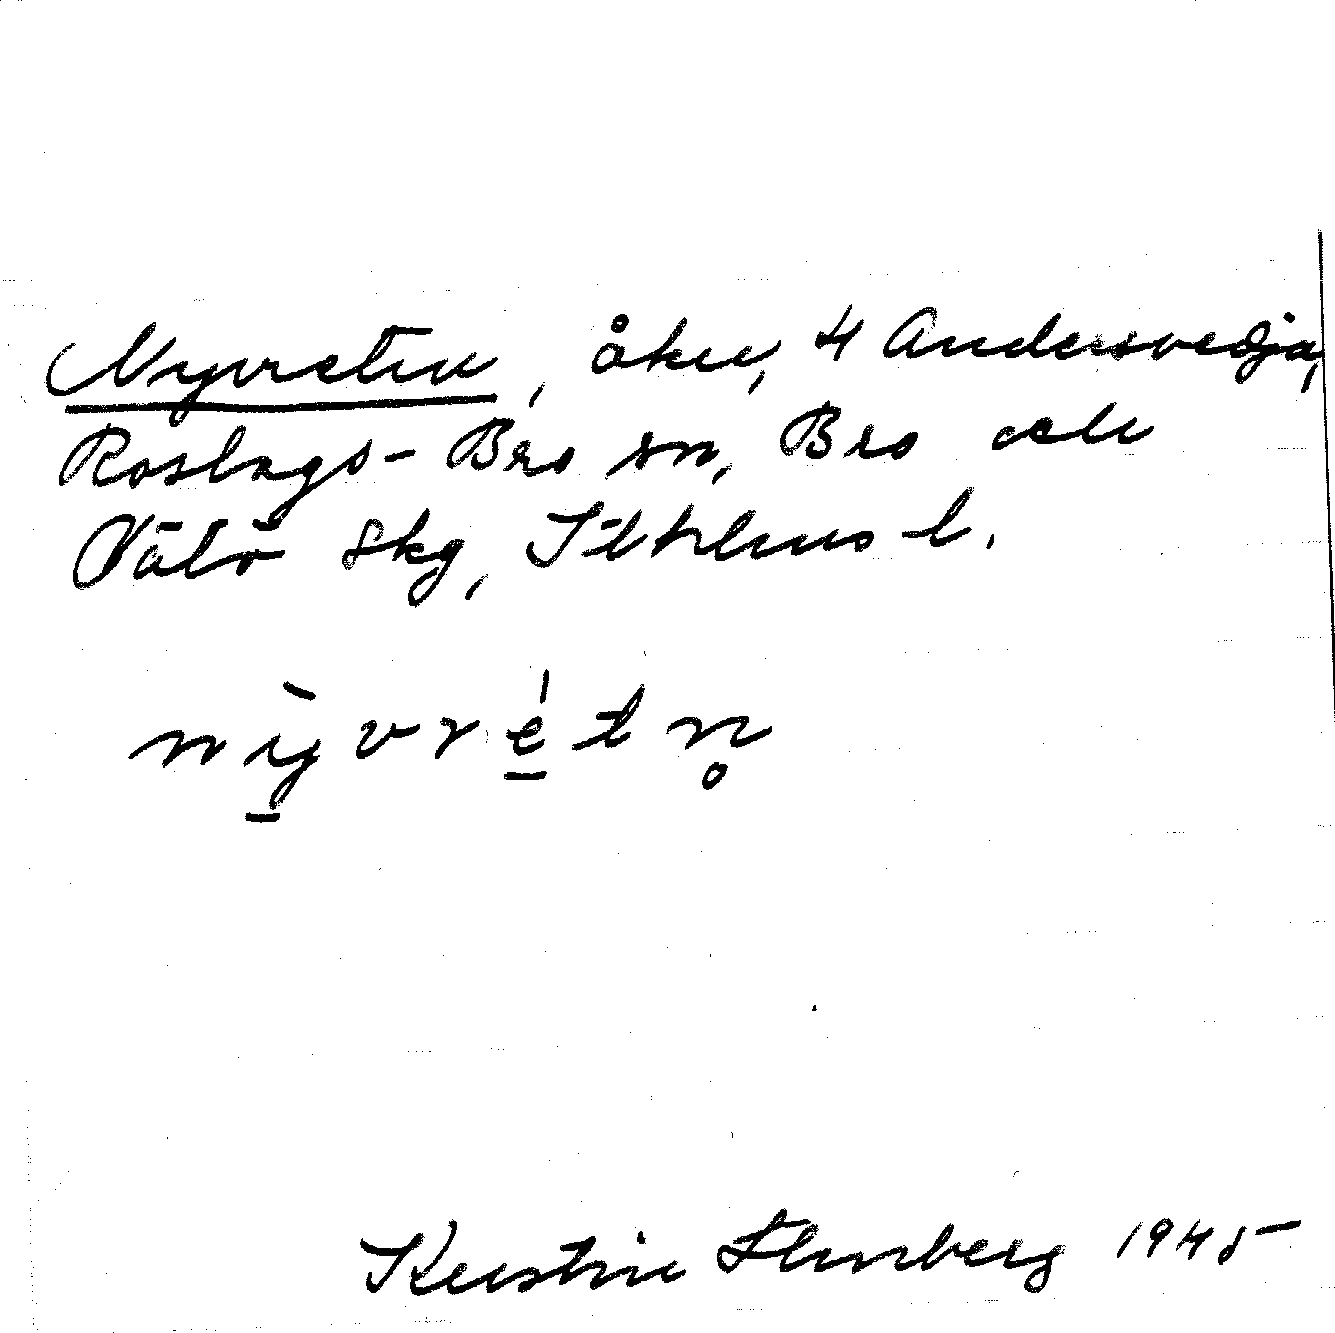 Nyvreten, åker, 4 Andersvedja,
Roslags-Bro sn, Bro och
Vätö skg, Sthlms l.
nỳ̠vré̠tn̥
Kerstin 1945